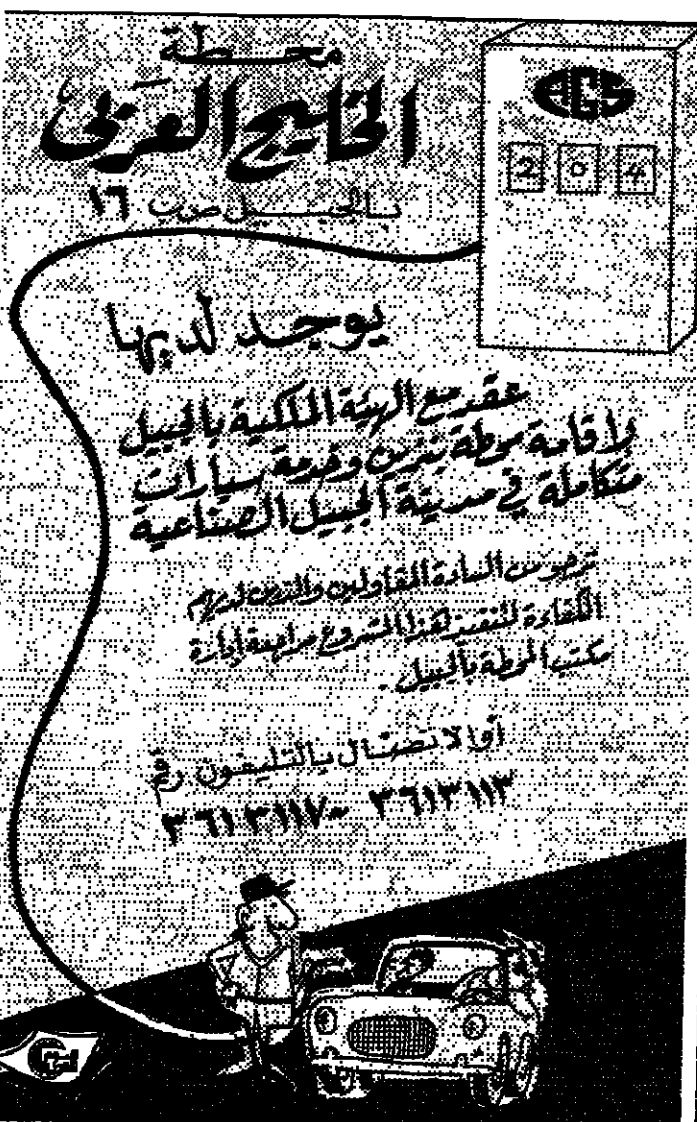 محطة
الخليج العربي
بالجبيل ص.ب ١٦
AGS
2 0 4
يوجد لديها
عقد مع الهيئة الملكية بالجبيل
لإقامة محطة بنزين وخدمة سيارات
متكاملة في مدينة الجبيل الصناعية
نرجو من السادة المقاولين والذين لديهم
الكفاءة لتنفيذ هذا المشروع مراجعة إدارة
مكتب المحطة بالجبيل .
أو الاتصال بالتليفون رقم
٣٦١٣١١٣ ~ ٣٦١٣١١٧